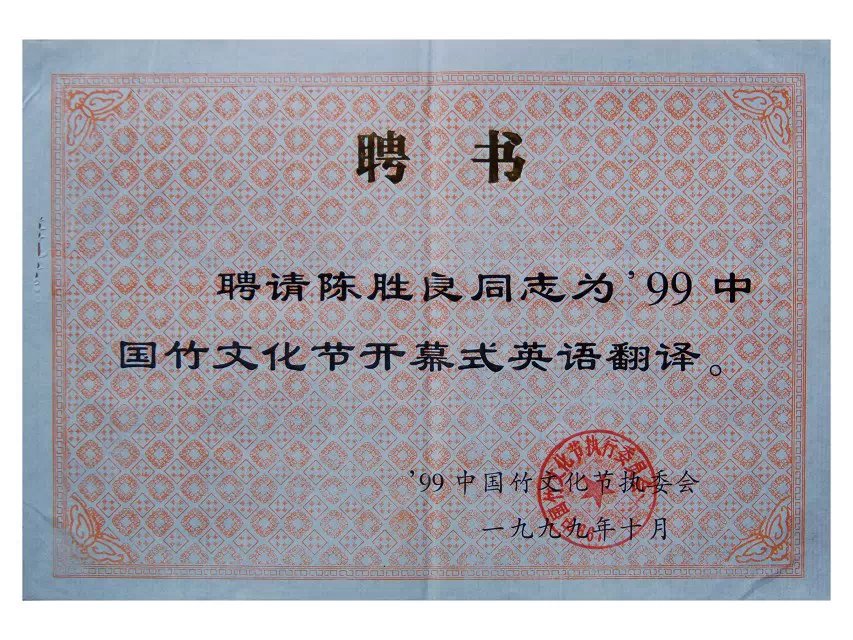 聘 书
聘请陈胜良同志为’99中
国竹文化节开幕式英语翻译。
’99中国竹文化节执委会
一九九九年十月